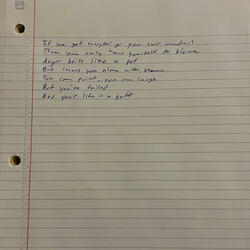 If you get everything you ever wanted
Then you only have yourself to blame
Anger boils like a pot
But leaves you alone with shame
You can point, you can laugh
But you've failed
And your life is a